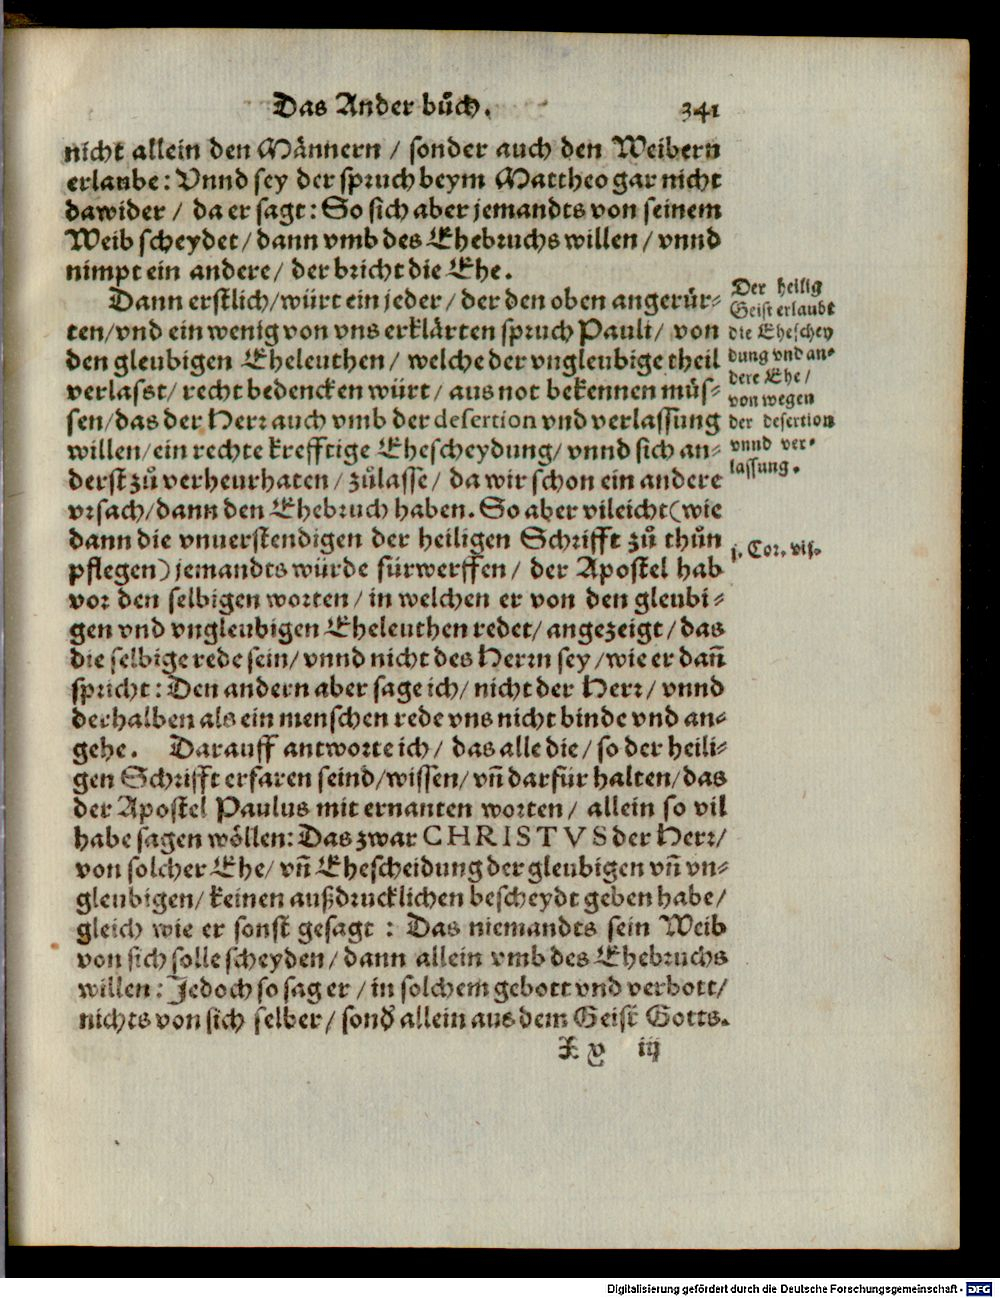 Das Ander bůch. 341
nicht allein den Männern / sonder auch den Weibern
erlaube: Vnnd sey der spruch beym Mattheo gar nicht
dawider / da er sagt: So sich aber jemandts von seinem
Weib scheydet / dann vmb des Ehebruchs willen / vnnd
nimpt ein andere / der bricht die Ehe.
Dann erstlich / würt ein jeder / der den oben angerür-
ten / vnd ein wenig von vns erklärten spruch Pauli / von
den gleubigen Eheleuthen / welche der vngleubige theil
verlasst / recht bedencken würt / aus not bekennen müs-
sen / das der Herr auch vmb der desertion vnd verlassung
willen / ein rechte krefftige Ehescheydung / vnnd sich an-
derst zů verheurhaten / zůlasse / da wir schon ein andere
vrsach / dann den Ehebruch haben. So aber vileicht (wie
dann die vnuerstendigen der heiligen Schrifft zů thůn
pflegen) jemandts würde fürwerffen / der Apostel hab
vor den selbigen worten / in welchen er von den gleubi-
gen vnd vngleubigen Eheleuthen redet / angezeigt / das
die selbige rede sein / vnnd nicht des Herrn sey / wie er dañ
spricht: Den andern aber sage ich / nicht der Herr / vnnd
derhalben als ein menschen rede vns nicht binde vnd an-
gehe. Darauff antworte ich / das alle die / so der heili-
gen Schrifft erfaren seind / wissen / vñ darfür halten / das
der Apostel Paulus mit ernanten worten / allein so vil
habe sagen wöllen: Das zwar CHRISTVS der Herr /
von solcher Ehe / vñ Ehescheidung der gleubigen vñ vn-
gleubigen / keinen außdrucklichen bescheydt geben habe /
gleich wie er sonst gesagt : Das niemandts sein Weib
von sich solle scheyden / dann allein vmb des Ehebruchs
willen: Jedoch so sag er / in solchem gebott vnd verbott /
nichts von sich selber / sonđ allein aus dem Geist Gotts.
Xy iij
Der heilig
Geist erlaubt
die Eheschey
dung vnd an-
dere Ehe /
von wegen
der desertion
vnnd ver-
lassung.
j. Cor. vij.
Digitalisierung gefördert durch die Deutsche Forschungsgemeinschaft - DFG